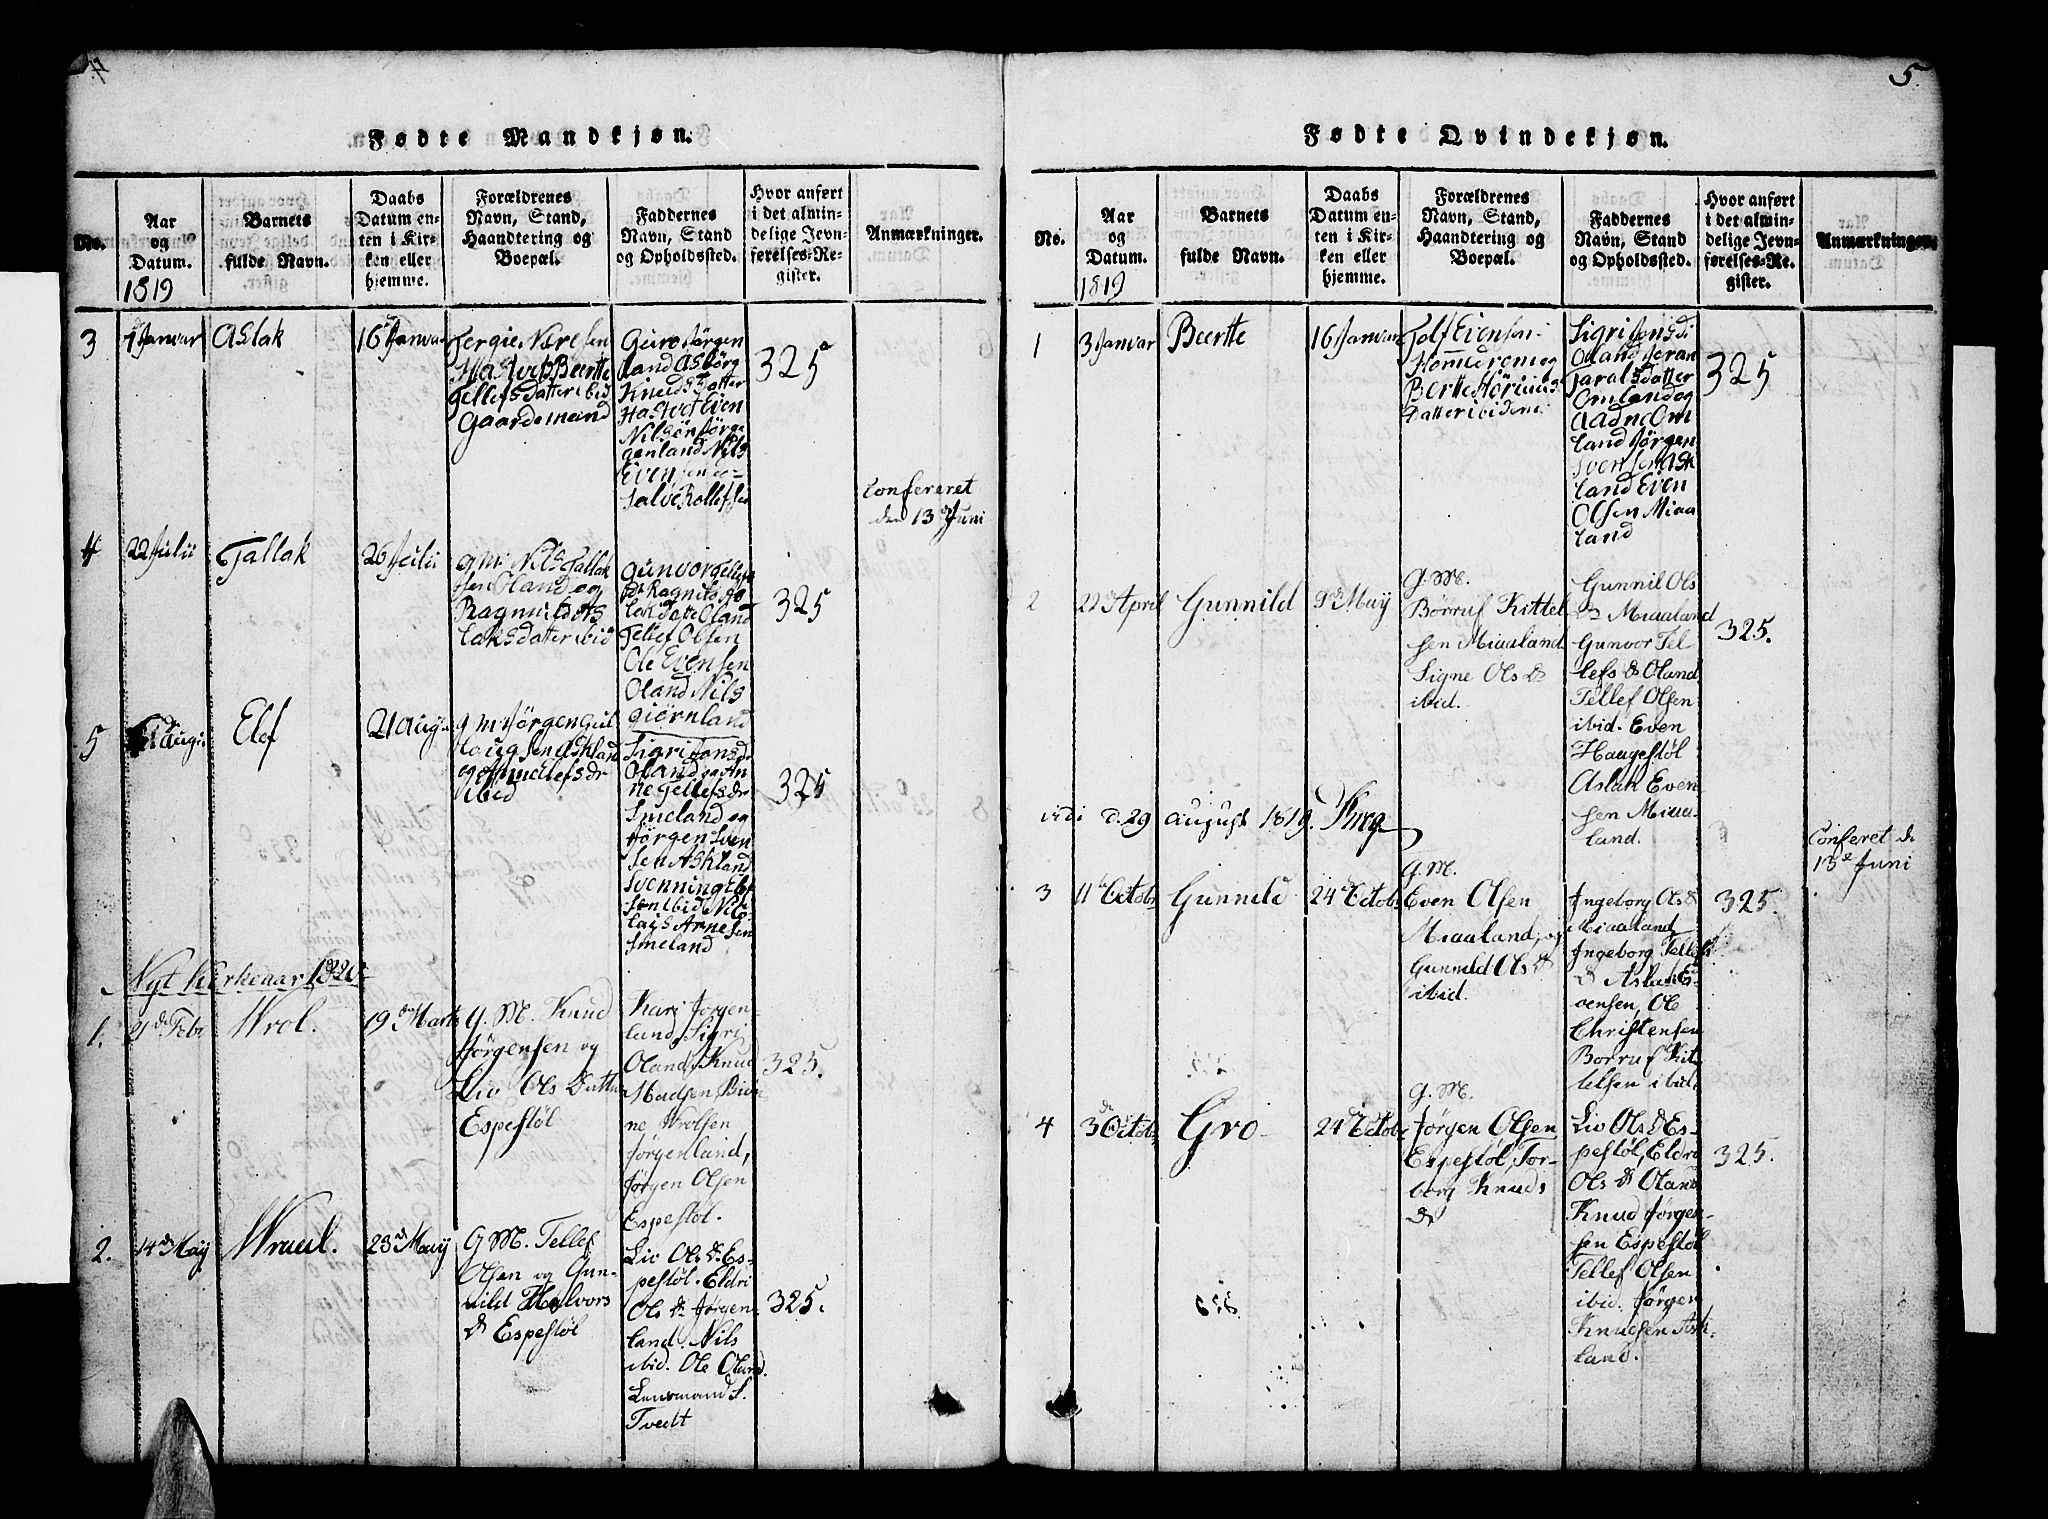 4.
Fødte Mandkjøn.
No.
Aar
og
Datum.
1819
Barnets
fulde Navn.
Daabs
Datum en-
ten i Kir-
ken eller
hjemme.
Forældrenes
Navn, Stand,
Haandtering og
Boepæl.
Faddernes
Navn, Stand
og Opholdssted.
Hvor anført
i det almin-
delige Jevn-
førelses-Re-
gister.
Anmærkninger.
3
Januar
Aslak
16 Januar
Beerte
Gellefsdatter ibid
Gaardemand
Guro Jørgen
land Asbørg
Knuds Datter
Even
Nilsøn Jørge
genland Nils
Evensen
Salve Rollefsen
325
Confereret
den 13 d Juni
4
22 Julii
Tallak
26 Julii
GM: Nils Tallak
sen Oland og
Ragnild As
laksdatter ibid
Gunvor Gellefs
dr Ragnild As
laksdatr Oland
Tellef Olsen
Ole Evensen
Oland Nils
Giørnland
325
5
Augu
Elef
21 Augu
G M Jørgen Gul
laugsen Askland
og Anne Elefsdr
ibid
Sigri Jonsdr
Oland og An
ne Gellefsdr
Smeland og
Jørgen Sven
sen Askland
Svenning Elef
sen ibid Nic
lais Arnesen
Smeland
325
Nyt Kirkeaar 1820
1.
Febr.
Wrol.
19 den Marts
G. M. Knud
Jørgensen og
Liv Ols Datter
Espestøl
Kari Jørgen-
land, Sigri
Oland, Knud
Madsen, Biør
ne Wrolsen
Jørgenland,
Jørgen Olsen
Espestøl.
325.
2.
14 d May
Wraal.
23 d May
G M. Tellef
Olsen og Gun-
nild Halvors
dr Espestøl
Liv Ols dr Es-
pestøl. Eldri
Ols dr Jørgen-
land. Nils
ibid. Ole Oland.
Lensmand S.
Tvedt
325.
5.
Fødte Qvindekjøn.
No.
Aar
og
Datum.
1819
Barnets
fulde Navn.
Daabs
Datum en-
ten i Kir-
ken eller
hjemme.
Forældrenes
Navn, Stand,
Haandtering og
Boepæl.
Faddernes
Navn, Stand
og Opholdssted.
Hvor anført
i det almin-
delige Jevn-
førelses-Re-
gister.
Anmærkninger.
1
3 Januar
Beerte
16 Januar
Berte
Datter ibidem
Sigri Jonsdr
Oland Joran
Taralsdatter
Omland og
Aadne Om
land Jørgen
Svensen Ask
land Even
Olsen Miaa
land
325
2
22 April
Gunnild
9 d May
G. M.
Børruf Kittel
sen Miaaland
Signe Ols dr
ibid.
Gunnil Ols
dr Miaaland
Gunvor Tel
lefs dr Oland
Tellef Olsen
ibid. Even
Haugestøl
Aslak Even
sen Miaa-
land.
325.
vidi d. 29 august 1819.
3
11 Octobr
Gunnild
24 Octobr
G. M.
Even Olsen
Miaaland, og
Gunnild Ols dr
ibid.
Ingeborg Ols dr
Miaaland,
Ingeborg Tellefs
dr Aslak E-
vensen, Ole
Christensen
Børruf Kit
telsen ibid.
325.
Conferet d
13 d Juni
4
3 Octobr
Gro
24 Octobr
G. M.
Jørgen Olsen
Espestøl, Tor-
borg Knuds
dr
Liv Ols dr Es-
pestøl, Eldri
Ols dr Oland
Knud Jørgen-
sen Espestøl
Tellef Olsen
ibid. Jørgen
Knudsen Ask-
land.
325.